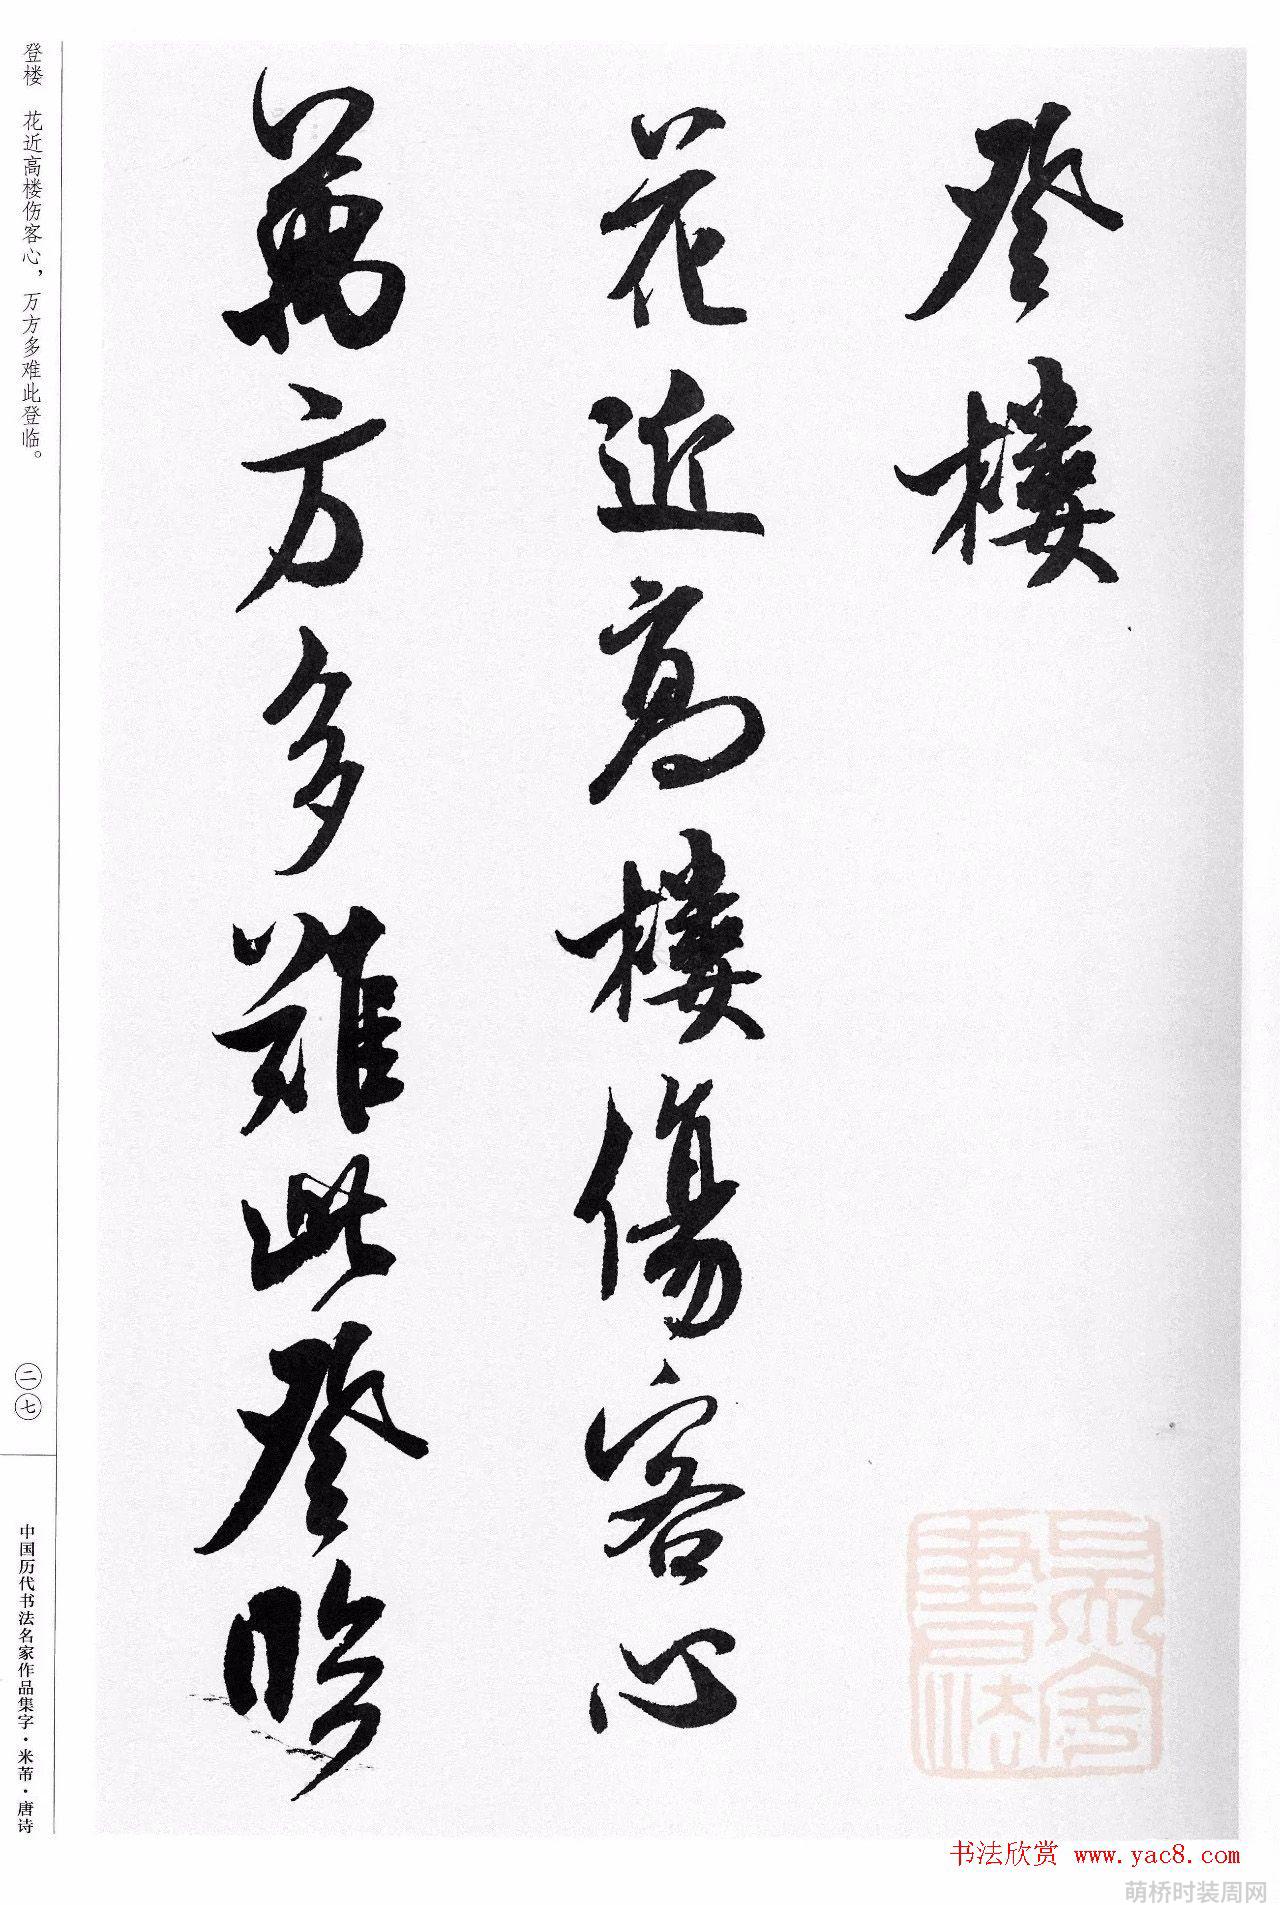 登樓
花近高樓傷客心
萬方多難此登臨
登楼 花近高楼伤客心，万方多难此登临。
二七
中国历代书法名家作品集字·米芾·唐诗
书法欣赏 www.yac8.com
萌桥时装周网